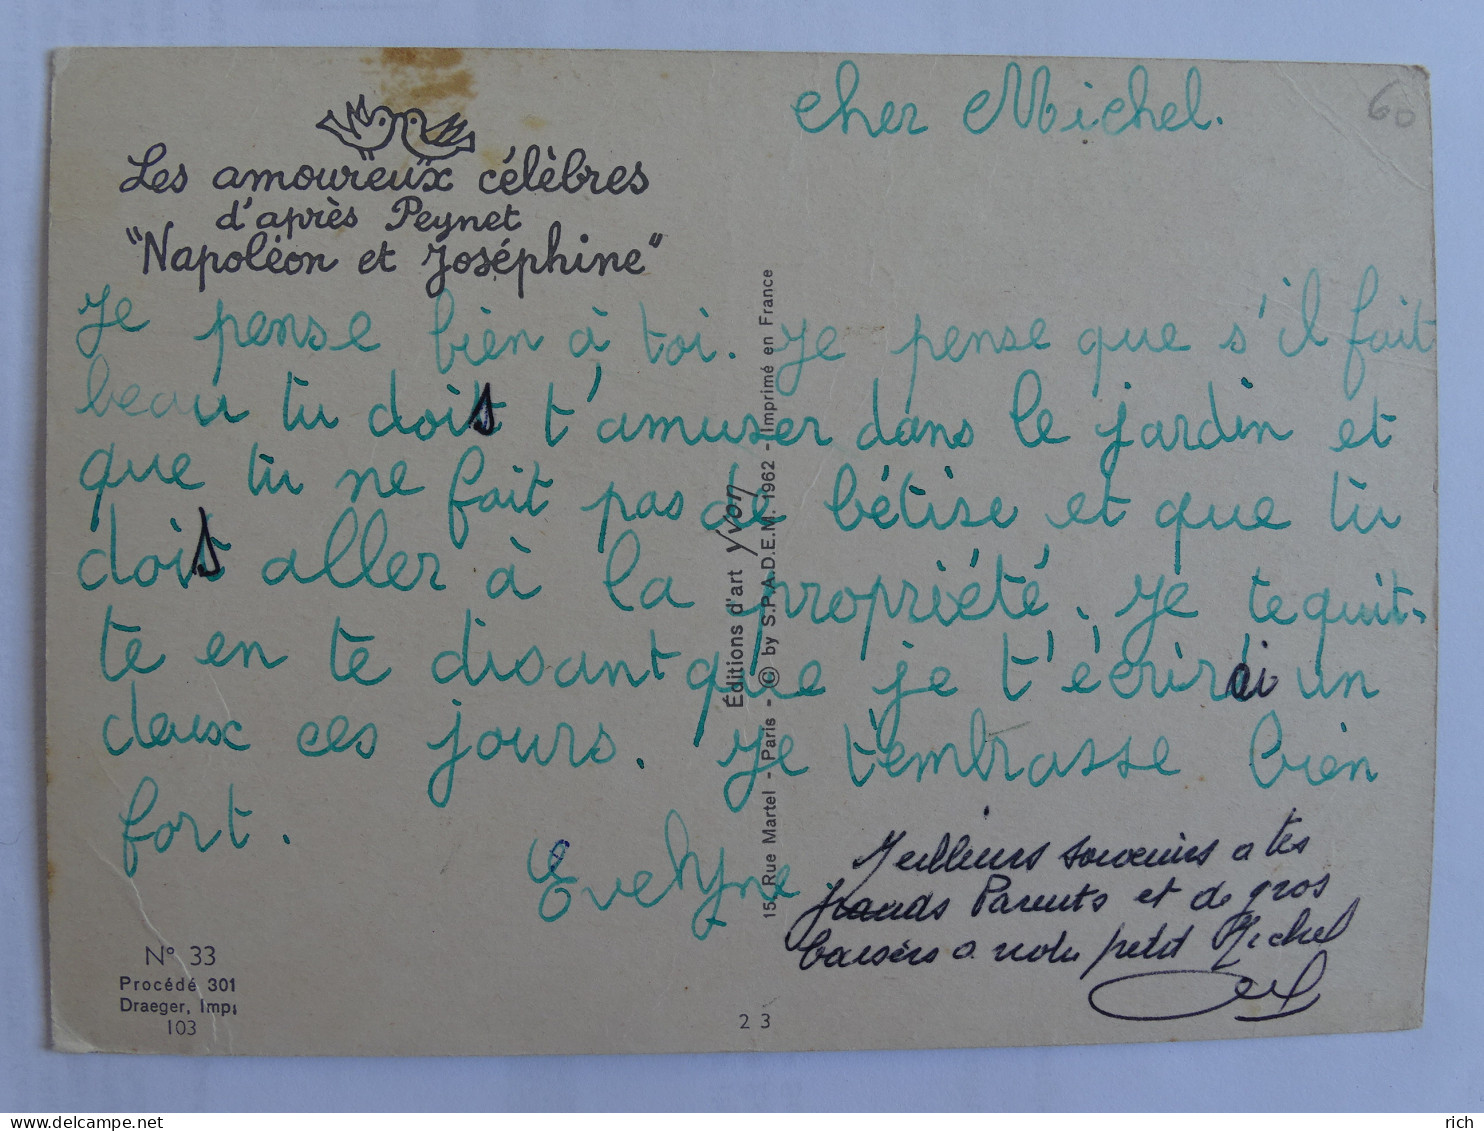 cher Michel.
60
Les amoureux célèbres
d'après Peynet
"Napoléon et Joséphine"
Je pense bien à toi. Je pense que s'il fait
beau tu dois t'amuser dans le jardin et
que tu ne fait pas de bétise et que tu
dois aller à la propriété. Je te quit-
te en te disant que je t'écrirai un
deux ces jours. Je t'embrasse bien
fort.
Evelyne
Meilleurs souvenirs a tes
grands Parents et de gros
baisers a notre petit Michel
Éditions d'art yvon
15, Rue Martel - Paris - © by S.P.A.D.E.M. 1962 - Imprimé en France
N° 33
Procédé 301
Draeger, Imp.
103
23
rich